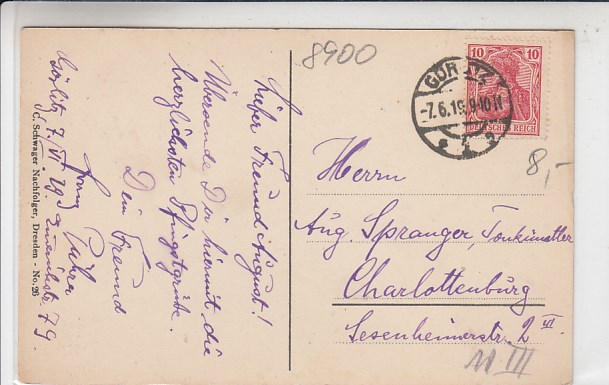 8900
Lieber Freund August!
Übersende Dir hiermit die
herzlichsten Pfingstgrüße.
Dein Freund
Franz
Görlitz 7. VI. 19.
C. Schwager Nachfolger, Dresden - No. 26
10 10
DEUTSCHES REICH
GÖRLITZ
-7.6.19.9-10N
8,-
Herrn
Aug. Spranger, Tonkünstler
Charlottenburg
Sesenheimerstr. 2 III.
III